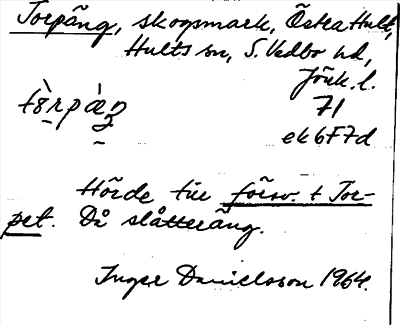 Torpäng, skogsmark, Östra Hult,
Hults sn, S. Vedbo hd,
Jönk. l.
71
ek 6F7d
Hörde till försv. t Tor-
pet. Då slåtteräng.
Inger Danielsson 1964.